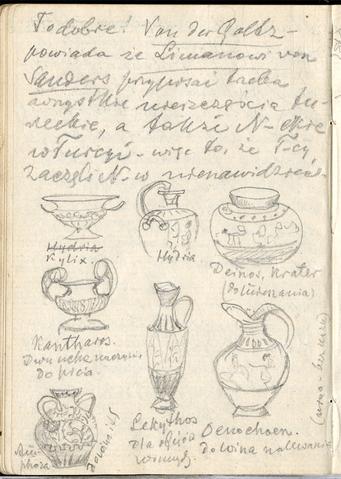 To dobre! Von der Goltz -
powiada że Limanowi von
Sanders przypisać trzeba
wszystkie nieszczęścia tu-
reckie, a także N-
w Turcyi - więc to, że T-cy
zaczęli N-w nienawidzieć.
Hydria
Kylix.
Hydria
Deinos, Krater
(do mieszania)
Kantharos.
Dwu uchy naczynie
do picia.
Lekythos
dla
Oenochoen.
do wina nalewania
Amphora